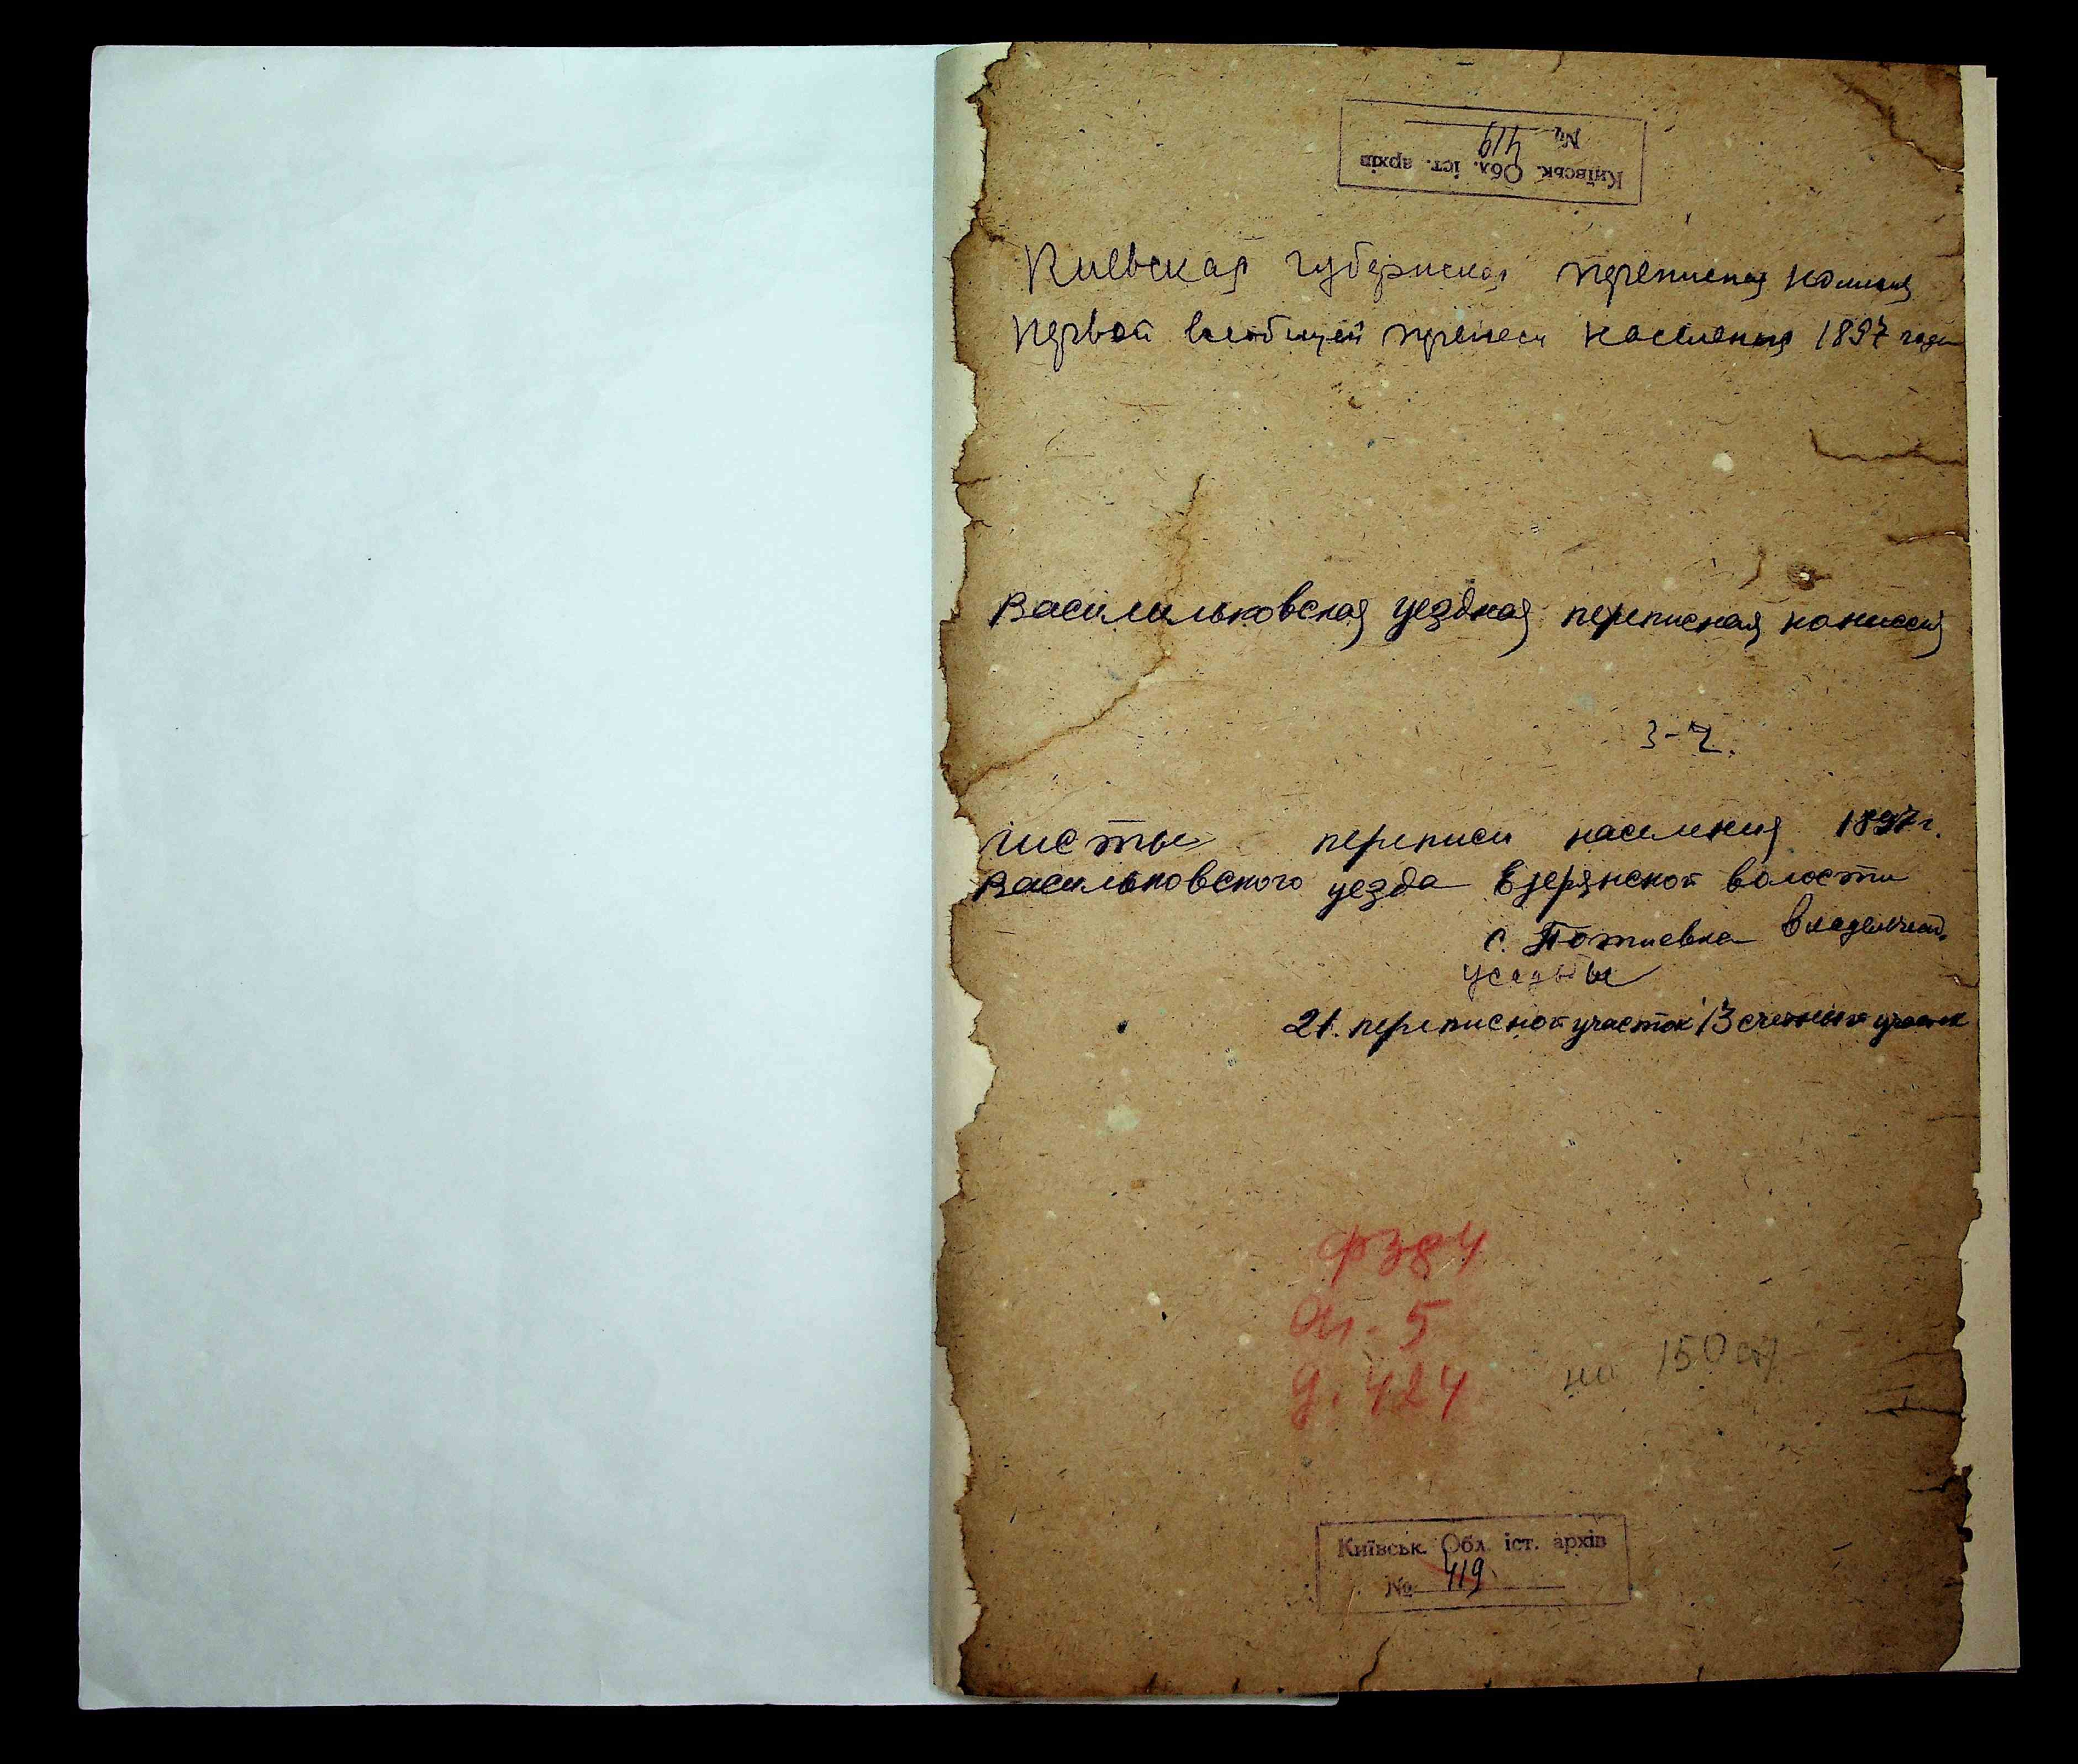 Київськ. Обл. іст. архів
№ 419
Киевская губернская переписная комисия
первой всеобщей переписи населения 1897 года
Василильковская уездная переписная комиссия
листы переписи населения 1897 г.
Васильковского уезда Езерянской волости
с. Потиевка владельческ.
усадьбы
21. переписной участок 13 счетный участок
ф 384
Оп. 5
д. 424
на 150
Київськ. Обл. іст. архів
№ 419